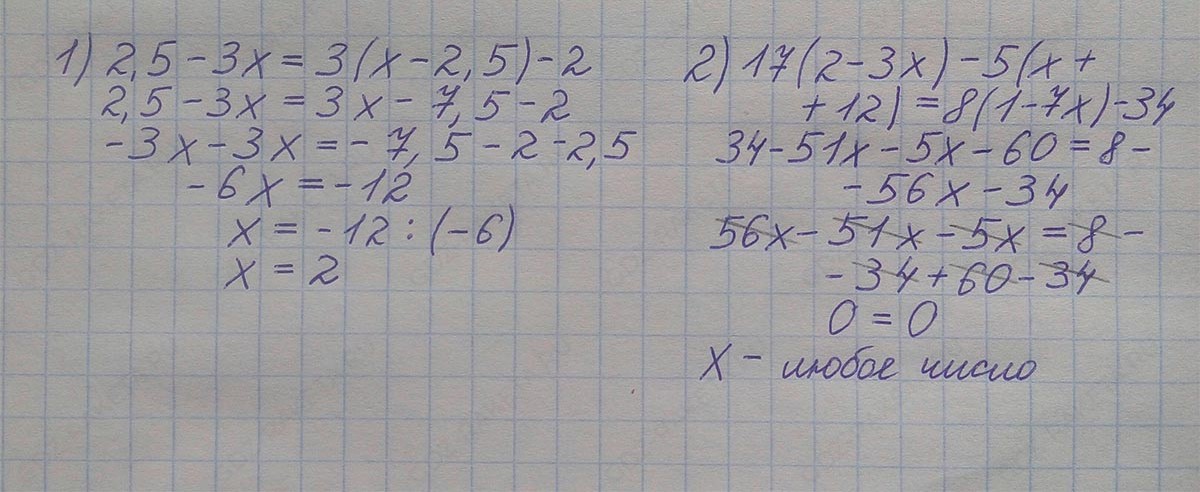 1) 2,5 - 3x = 3(x - 2,5) - 2
2,5 - 3x = 3x - 7,5 - 2
-3x - 3x = - 7,5 - 2 - 2,5
-6x = -12
x = -12 : (-6)
x = 2
2) 17(2 - 3x) - 5(x +
+ 12) = 8(1 - 7x) - 34
34 - 51x - 5x - 60 = 8 -
- 56x - 34
56x - 51x - 5x = 8 -
- 34 + 60 - 34
0 = 0
X - любое число